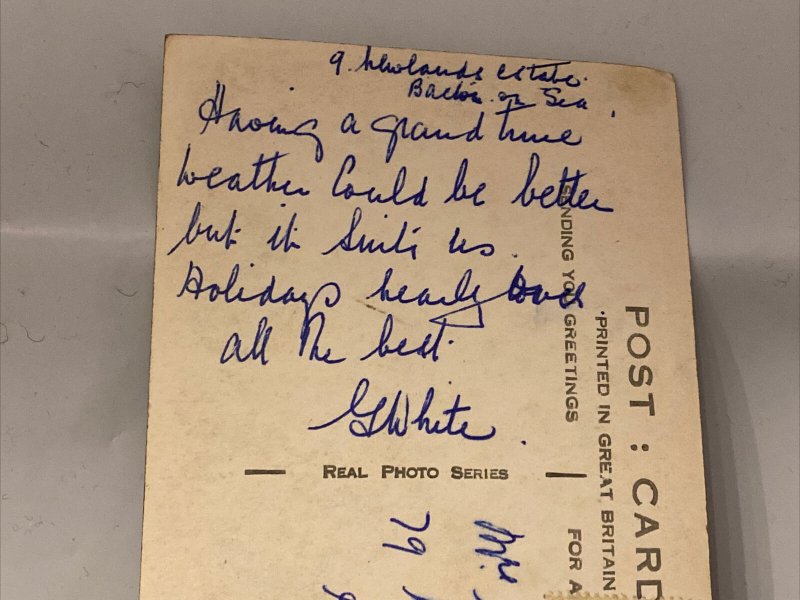 9. Newlands Estate.
Bacton on Sea
Having a grand time
weather could be better
but it suits us.
Holidays nearly over
all the best.
G White.
REAL PHOTO SERIES
POST : CARD
PRINTED IN GREAT BRITAIN
SENDING YOU GREETINGS
FOR A
Mrs
79